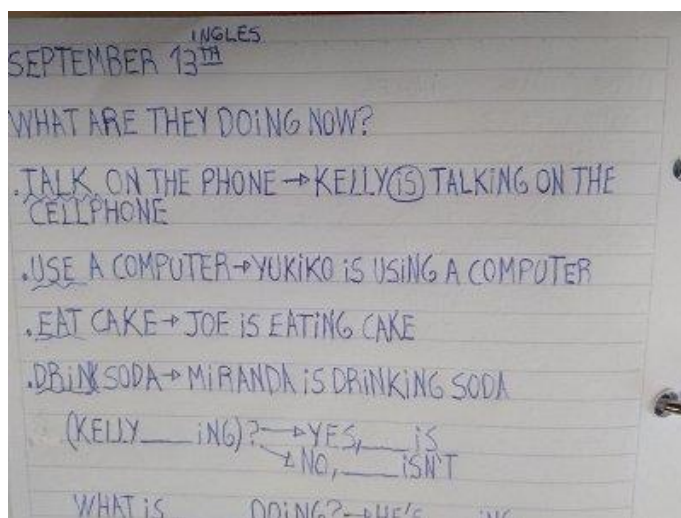 INGLES
SEPTEMBER 13TH
WHAT ARE THEY DOING NOW?
. TALK ON THE PHONE → KELLY IS TALKING ON THE
CELLPHONE
. USE A COMPUTER → YUKIKO IS USING A COMPUTER
. EAT CAKE → JOE IS EATING CAKE
. DRINK SODA → MIRANDA IS DRINKING SODA
(KELLY ___ ING)? → YES, ___ IS
→ NO, ___ ISN'T
WHAT IS ___ DOING? → HE'S ___ ING